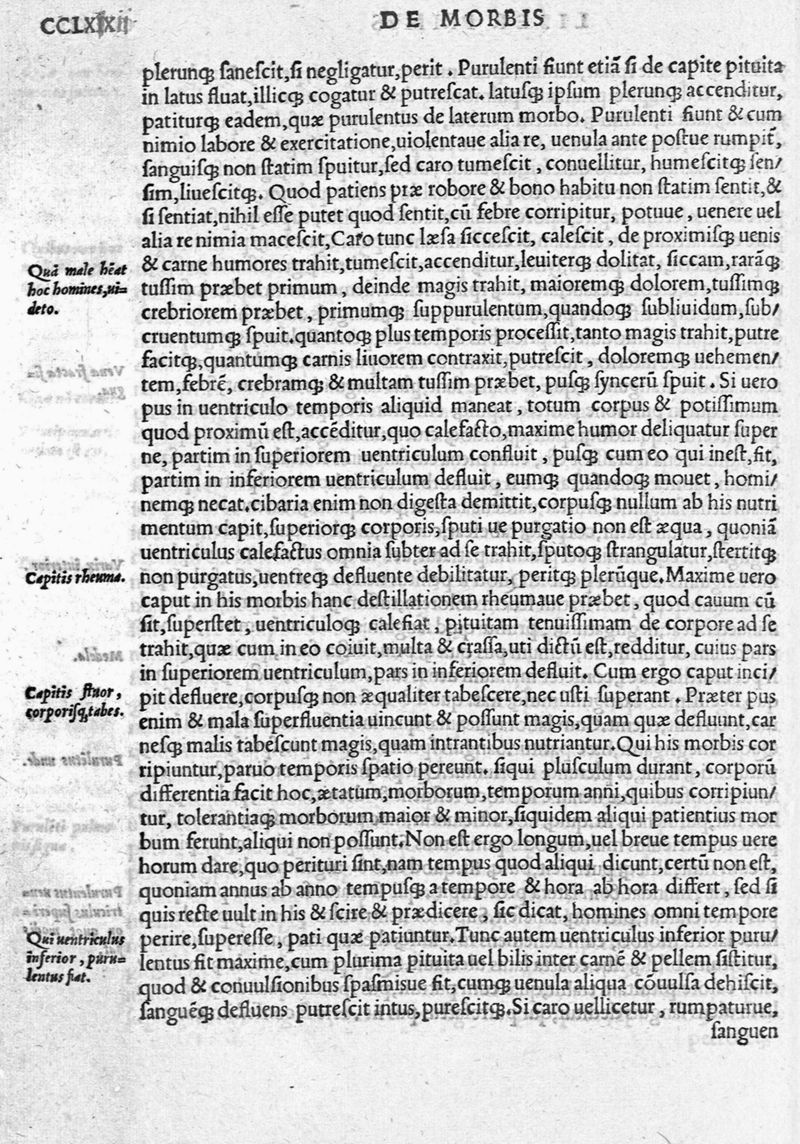 CCLXXII
DE MORBIS
plerunq; ſaneſcit,ſi negligatur,perit. Purulenti fiunt etiā ſi de capite pituita
in latus fluat,illicq; cogatur & putreſcat. latuſq; ipſum plerunq; accenditur,
patiturq; eadem,quæ purulentus de laterum morbo. Purulenti fiunt & cum
nimio labore & exercitatione,uiolentaue alia re, uenula ante poſtue rumpit̃,
ſanguiſq; non ſtatim ſpuitur,ſed caro tumeſcit, conuellitur, humeſcitq; ſen/
ſim,liueſcitq;. Quod patiens præ robore & bono habitu non ſtatim ſentit,&
ſi ſentiat,nihil eſſe putet quod ſentit,cū febre corripitur, potuue, uenere uel
alia re nimia maceſcit,Caro tunc læſa ſicceſcit, caleſcit, de proximiſq; uenis
& carne humores trahit,tumeſcit,accenditur,leuiterq; dolitat, ſiccam,rarāq;
tuſſim præbet primum, deinde magis trahit, maioremq; dolorem,tuſſimq;
crebriorem præbet, primumq; ſuppurulentum,quandoq; ſubliuidum,ſub/
cruentumq; ſpuit.quantoq; plus temporis proceſſit,tanto magis trahit,putre
facitq;,quantumq; carnis liuorem contraxit,putreſcit, doloremq; uehemen/
tem,febrē, crebramq; & multam tuſſim præbet, puſq; ſyncerū ſpuit. Si uero
pus in uentriculo temporis aliquid maneat, totum corpus & potiſſimum
quod proximū eſt,accēditur,quo calefacto,maxime humor deliquatur ſuper
ne, partim in ſuperiorem uentriculum confluit, puſq; cum eo qui ineſt,fit,
partim in inferiorem uentriculum defluit, eumq; quandoq; mouet, homi/
nemq; necat.cibaria enim non digeſta demittit,corpuſq; nullum ab his nutri
mentum capit,ſuperiorq; corporis,ſputi ue purgatio non eſt æqua, quoniā
uentriculus calefactus omnia ſubter ad ſe trahit,ſputoq; ſtrangulatur,ſtertitq;
non purgatus,uentreq; defluente debilitatur, peritq; plerūque.Maxime uero
caput in his morbis hanc deſtillationem rheumaue præbet, quod cauum cū
ſit,ſuperſtet, uentriculoq; calefiat, pituitam tenuiſſimam de corpore ad ſe
trahit,quæ cum in eo coiuit,multa & craſſa,uti dictū eſt,redditur, cuius pars
in ſuperiorem uentriculum,pars in inferiorem defluit. Cum ergo caput inci/
pit defluere,corpuſq; non æqualiter tabeſcere,nec uſti ſuperant. Præter pus
enim & mala ſuperfluentia uincunt & poſſunt magis,quam quæ defluunt,car
neſq; malis tabeſcunt magis,quam intrantibus nutriantur.Qui his morbis cor
ripiuntur,paruo temporis ſpatio pereunt. ſiqui pluſculum durant, corporū
differentia facit hoc,ætatum,morborum,temporum anni,quibus corripiun/
tur, tolerantiaq; morborum maior & minor,ſiquidem aliqui patientius mor
bum ferunt,aliqui non poſſunt.Non eſt ergo longum,uel breue tempus uere
horum dare,quo perituri ſint,nam tempus quod aliqui dicunt,certū non eſt,
quoniam annus ab anno tempuſq; a tempore & hora ab hora differt, ſed ſi
quis recte uult in his & ſcire & prædicere, ſic dicat, homines omni tempore
perire,ſupereſſe, pati quæ patiuntur.Tunc autem uentriculus inferior puru/
lentus fit maxime,cum plurima pituita uel bilis inter carnē & pellem ſiſtitur,
quod & conuulſionibus ſpaſmisue fit,cumq; uenula aliqua cōuulſa dehiſcit,
ſanguēq; defluens putreſcit intus,pureſcitq;.Si caro uellicetur, rumpaturue,
ſanguen
Quā male hēat
hoc homines,ui=
deto.
Capitis rheuma.
Capitis fluor,
corporiſq; tabes.
Qui uentriculus
inferior, puru=
lentus fiat.